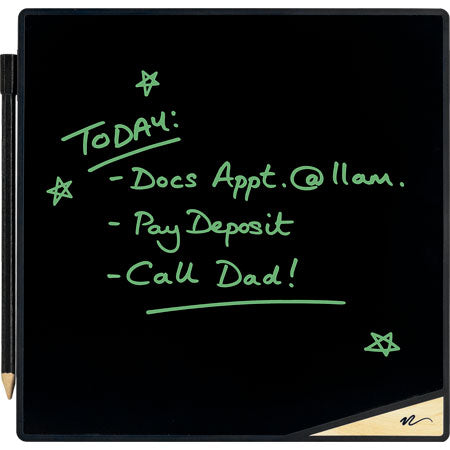 TODAY:
- Docs Appt. @ 11am.
- Pay Deposit
- Call Dad!